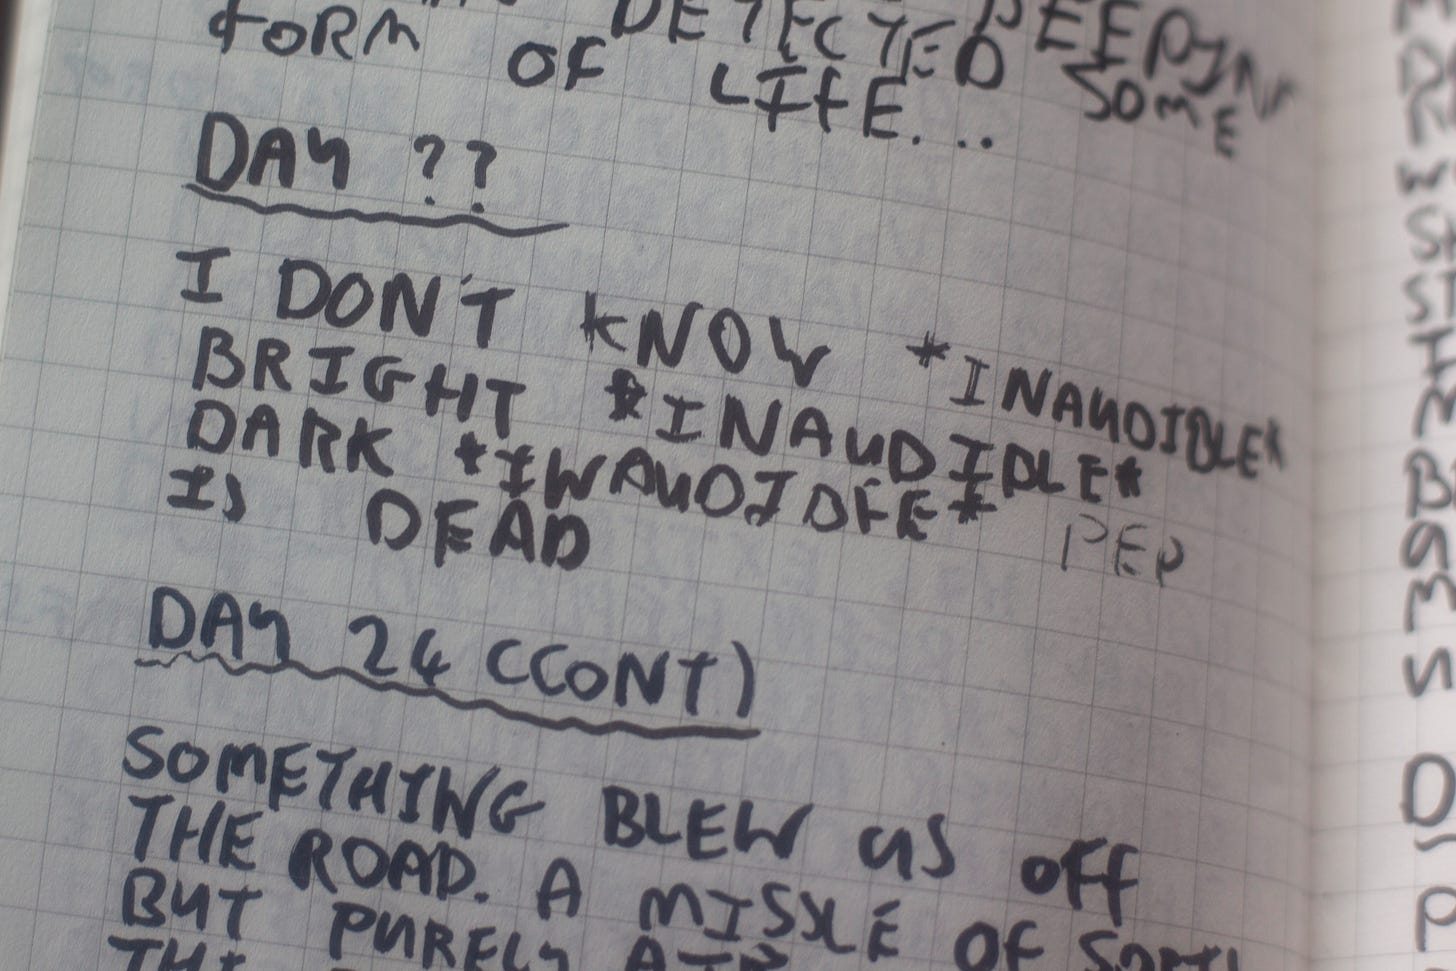 DETECTED
SOME
FORM OF LIFE...
DAY ??
I DON'T KNOW *INAUDIBLE*
BRIGHT *INAUDIBLE*
DARK *INAUDIBLE* PEP
IS DEAD
DAY 24 (CONT)
SOMETHING BLEW US OFF
THE ROAD. A MISSLE OF
BUT PURELY AIR